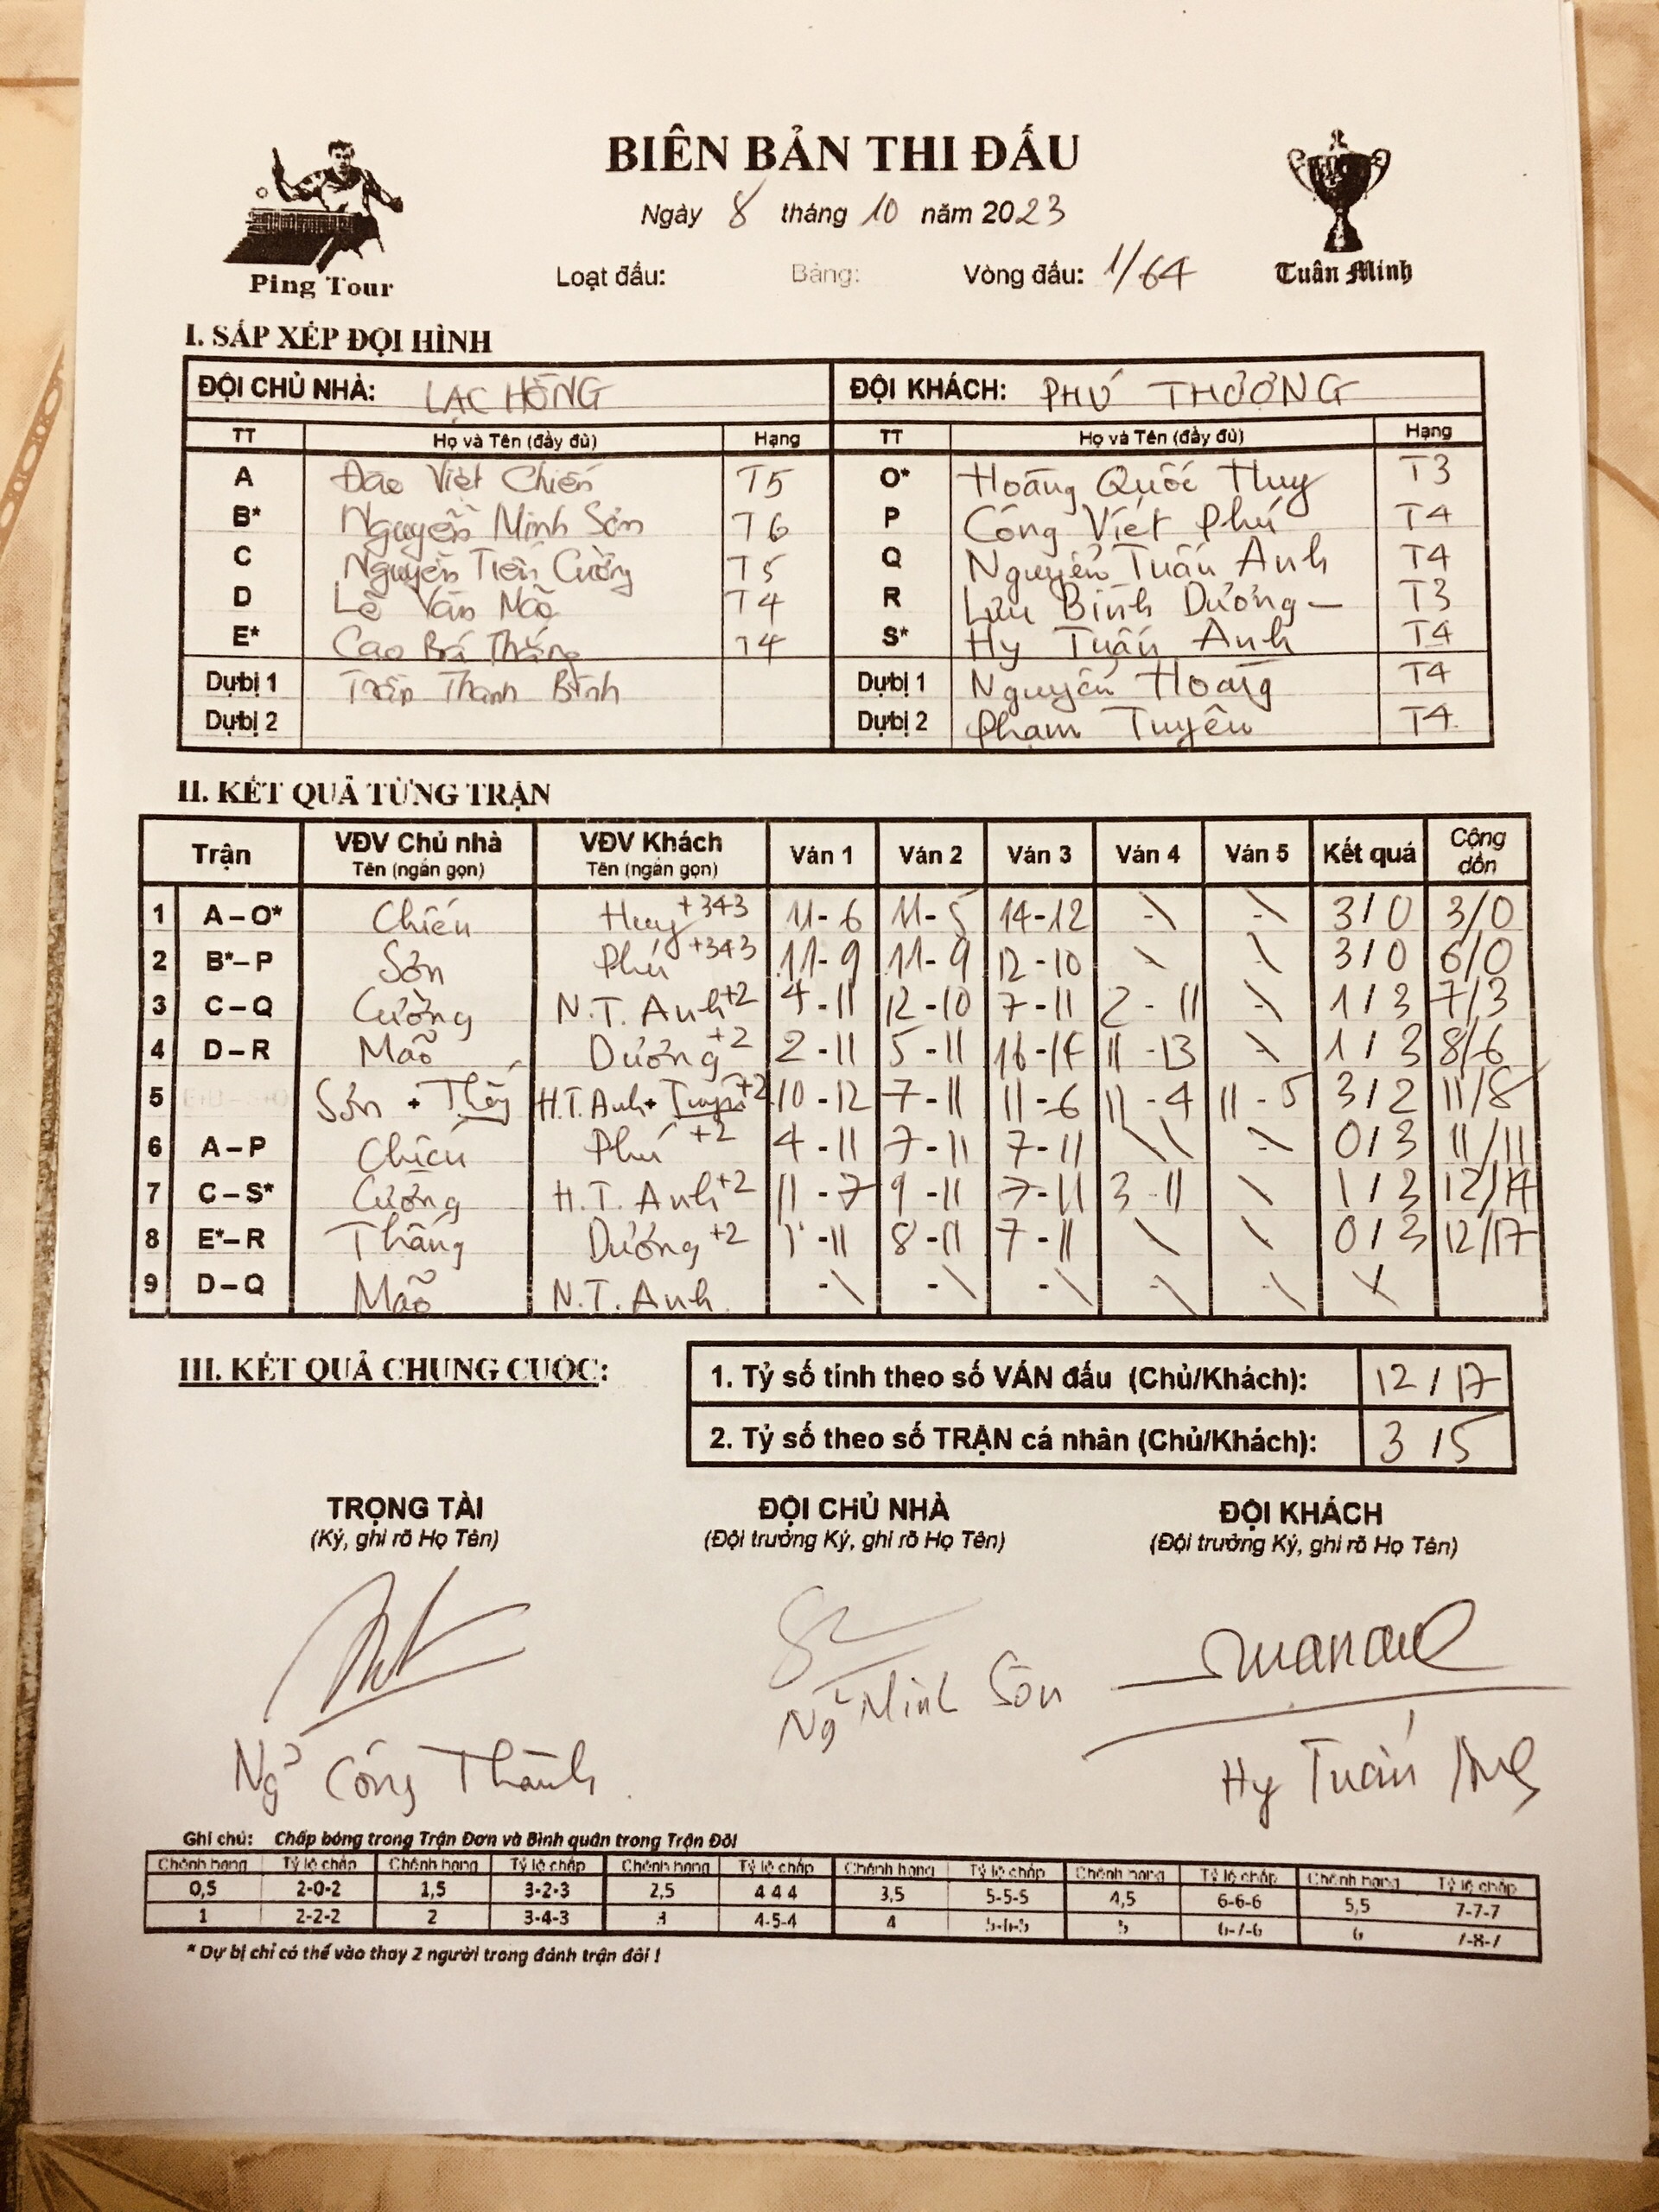 BIÊN BẢN THI ĐẤU
Ngày 8 tháng 10 năm 2023
Ping Tour
Loạt đấu: Bảng: Vòng đấu: 1/64
Tuân Minh
I. SẮP XẾP ĐỘI HÌNH
ĐỘI CHỦ NHÀ: LẠC HỒNG ĐỘI KHÁCH: PHÚ THƯỢNG
TT Họ và Tên (đầy đủ) Hạng TT Họ và Tên (đầy đủ) Hạng
A Đào Việt Chiến T5 O* Hoàng Quốc Huy T3
B* Nguyễn Minh Sơn T6 P Công Việt Phú T4
C Nguyễn Tiến Cường T5 Q Nguyễn Tuấn Anh T4
D Lê Văn Mão T4 R Lưu Bình Dương - T3
E* Cao Bá Thắng T4 S* Hy Tuấn Anh T4
Dự bị 1 Thanh Bình Dự bị 1 Nguyễn Hoàng T4
Dự bị 2 Dự bị 2 Phạm Tuyên T4
II. KẾT QUẢ TỪNG TRẬN
Trận VĐV Chủ nhà VĐV Khách Ván 1 Ván 2 Ván 3 Ván 4 Ván 5 Kết quả Cộng dồn
Tên (ngắn gọn) Tên (ngắn gọn)
1 A – O* Chiến Huy +343 11 - 6 11 - 5 14 - 12 - - 3 / 0 3/0
2 B* – P Sơn Phú +343 11 - 9 11 - 9 12 - 10 3 / 0 6/0
3 C – Q Cường N.T. Anh +2 4 - 11 12 - 10 7 - 11 2 - 11 - 1 / 3 7/3
4 D – R Mão Dương +2 2 - 11 5 - 11 11 - 13 - 1 / 3 8/6
5 Sơn + H.T. Anh + +2 10 - 12 7 - 11 11 - 6 11 - 4 11 - 5 3 / 2 11/8
6 A – P Chiến Phú +2 4 - 11 7 - 11 7 - 11 - 0 / 3 11/11
7 C – S* Cường H.T. Anh +2 11 - 7 9 - 11 7 - 11 3 - 11 1 / 3 12/14
8 E* – R Thắng Dương +2 - 11 8 - 11 7 - 11 0 / 3 12/17
9 D – Q Mão N.T. Anh - - - - - X
III. KẾT QUẢ CHUNG CUỘC:
1. Tỷ số tính theo số VÁN đấu (Chủ/Khách): 12 / 17
2. Tỷ số theo số TRẬN cá nhân (Chủ/Khách): 3 / 5
TRỌNG TÀI ĐỘI CHỦ NHÀ ĐỘI KHÁCH
(Ký, ghi rõ Họ Tên) (Đội trưởng Ký, ghi rõ Họ Tên) (Đội trưởng Ký, ghi rõ Họ Tên)
Ng Công Thành Ng Minh Sơn Hy Tuấn Anh
Ghi chú: Chấp bóng trong Trận Đơn và Bình quân trong Trận Đôi
Chênh hạng Tỷ lệ chấp Chênh hạng Tỷ lệ chấp Chênh hạng Tỷ lệ chấp Chênh hạng Tỷ lệ chấp Chênh hạng Tỷ lệ chấp Chênh hạng Tỷ lệ chấp
0,5 2-0-2 1,5 3-2-3 2,5 4 4 4 3,5 5-5-5 4,5 6-6-6 5,5 7-7-7
1 2-2-2 2 3-4-3 3 4-5-4 4 5-6-5 5 6-7-6 6 7-8-7
* Dự bị chỉ có thể vào thay 2 người trong đánh trận đôi !